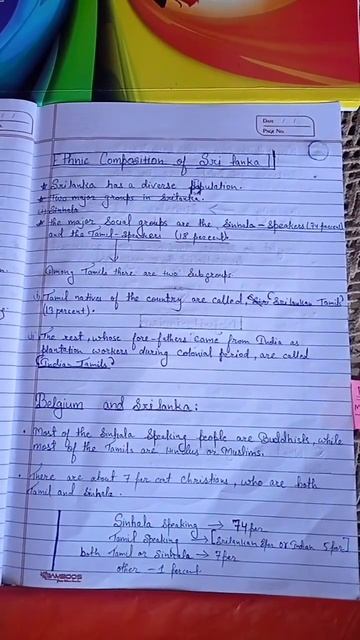 Date / /
Page No.
Ethnic Composition of Sri lanka
★ Srilanka has a diverse population.
★ Two major groups in Srilanka.
① Sinhala
★ the major Social groups are the, Sinhala-Speakers (74 percent)
and the Tamil-Speakers (18 percent
Among Tamils there are two Subgroups
i) Tamil natives of the country are called, Srilankan Tamils
(13 percent).
The rest, whose fore-fathers came from India as
plantation workers during colonial period, are called
'Indian Tamils'
Belgium and Sri lanka:
• Most of the Sinhala Speaking people are Buddhists, while
most of the Tamils are Hindus or Muslims.
• There are about 7 per cent Christians, who are both
Tamil and Sinhala.
Sinhala Speaking → 74 per
Tamil Speaking → [Srilankan per or Indian 5 per]
both Tamil or Sinhala → 7 per
other - 1 percent